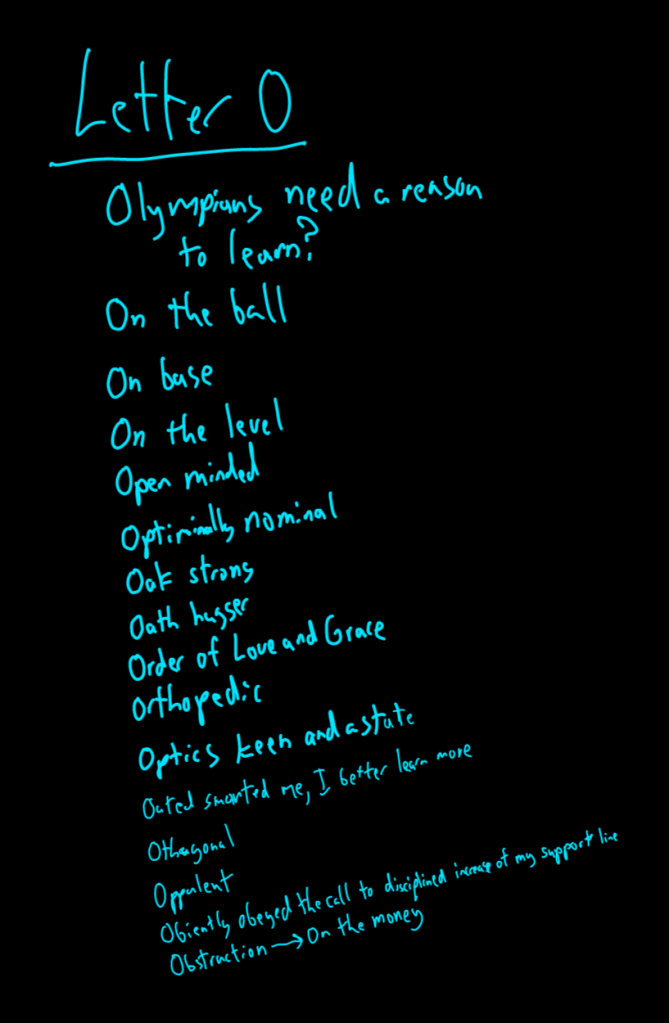 Letter O
Olympians need a reason
to learn?
On the ball
On base
On the level
Open minded
Optiminally nominal
Oak strong
Oath hugger
Order of Love and Grace
Orthopedic
Optics keen and astute
Outed smarted me, I better learn more
Othagonal
Oppulent
Obiently obeyed the call to disciplined increase of my support line
Obstruction → On the money